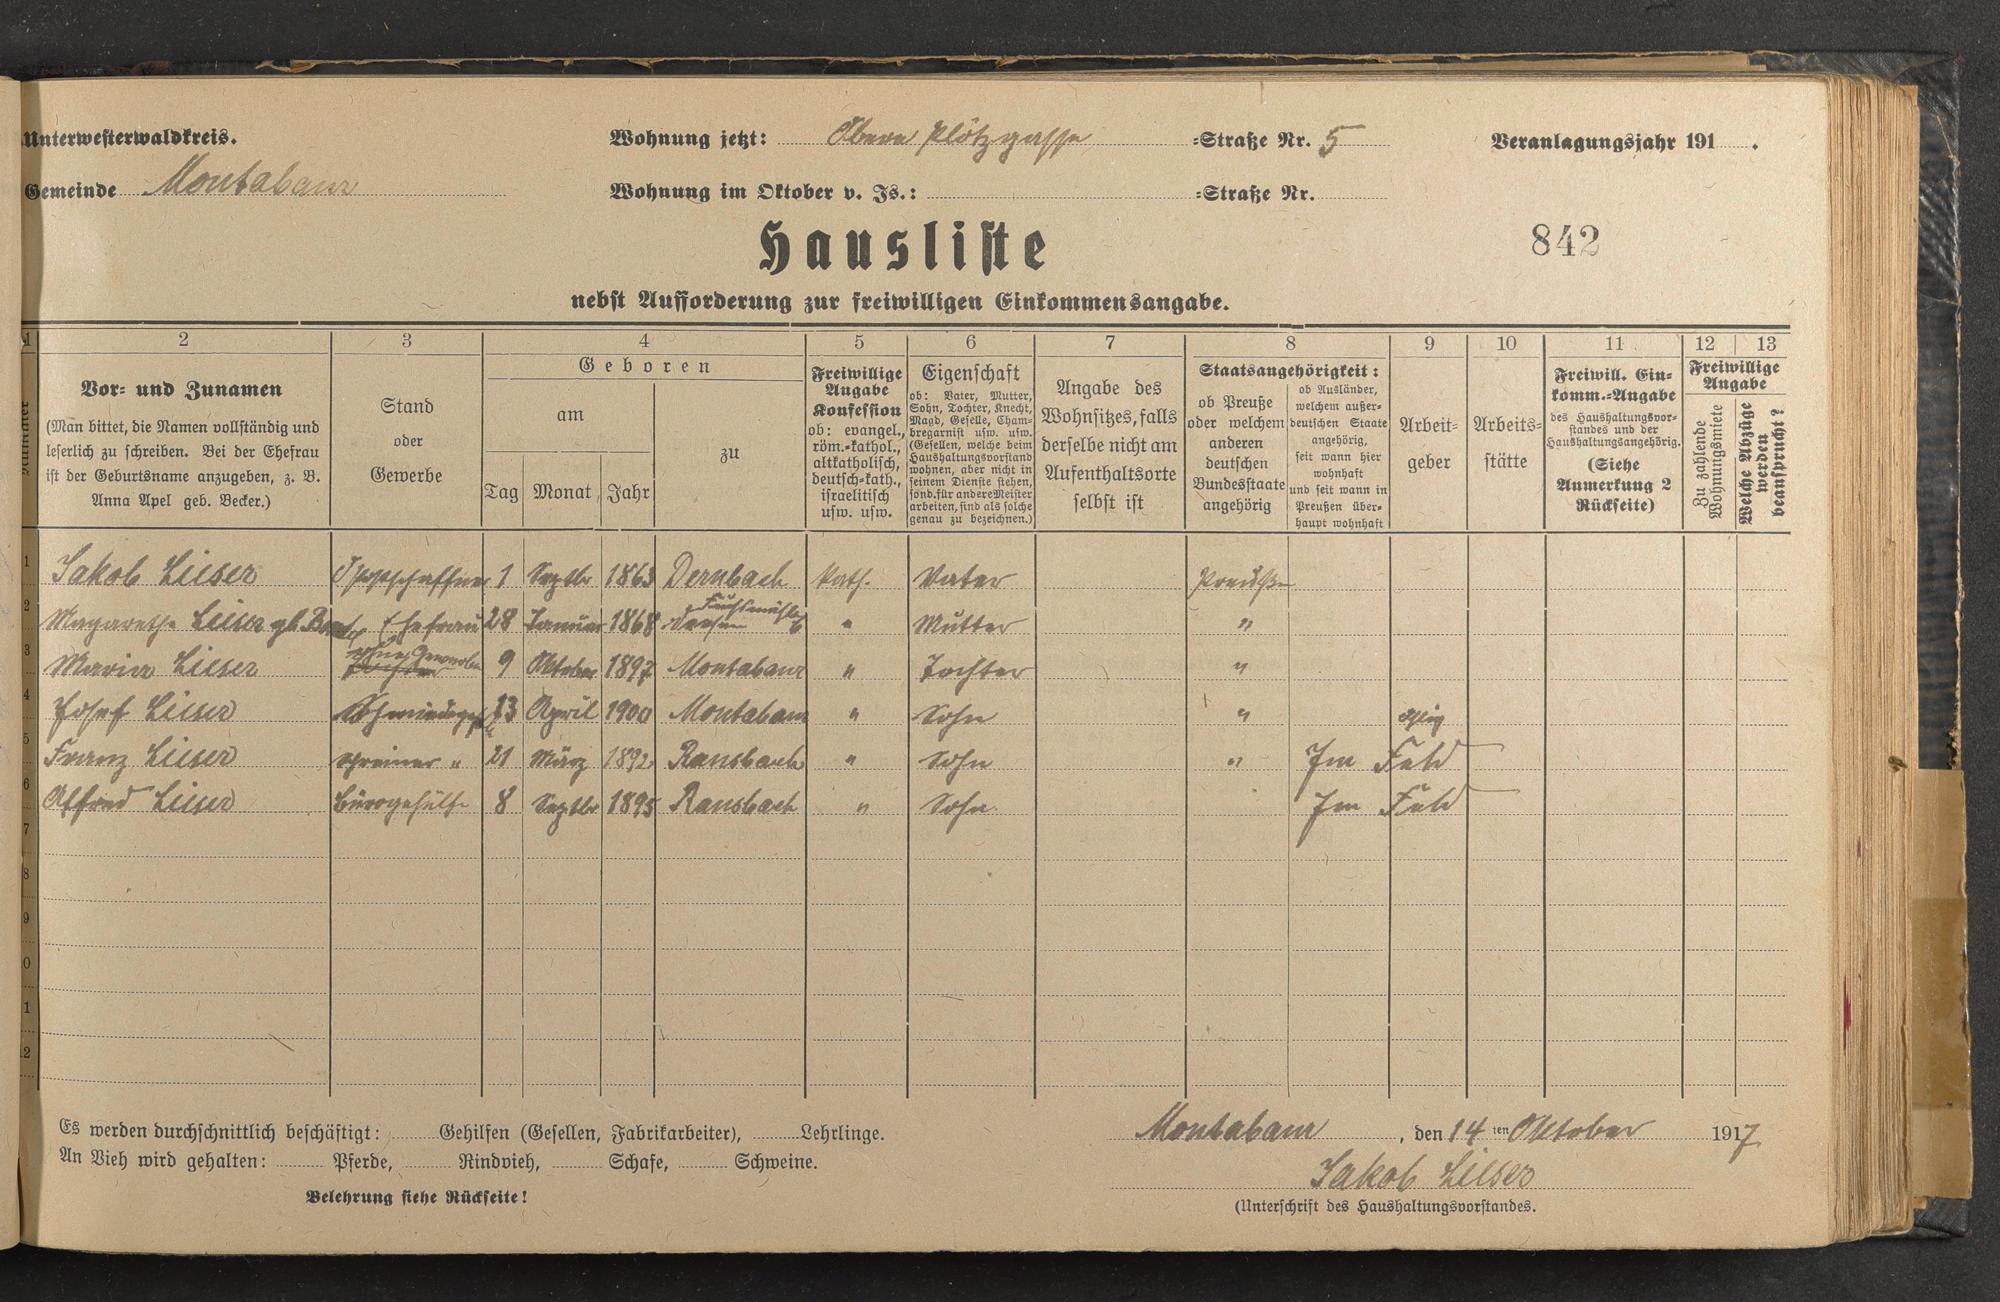 Unterwesterwaldkreis.
Wohnung jetzt: Obere Plötzgasse =Straße Nr. 5
Veranlagungsjahr 191 .
Gemeinde Montabaur
Wohnung im Oktober v. Js.: =Straße Nr.
Hausliste
842
nebst Aufforderung zur freiwilligen Einkommensangabe.
1 2 3 4 5 6 7 8 9 10 11 12 13
Nummer
Vor= und Zunamen
(Man bittet, die Namen vollständig und
leserlich zu schreiben. Bei der Ehefrau
ist der Geburtsname anzugeben, z. B.
Anna Apel geb. Becker.)
Stand
oder
Gewerbe
Geboren
am
Tag Monat Jahr
zu
Freiwillige
Angabe
Konfession
ob: evangel.,
röm.=kathol.,
altkatholisch,
deutsch=kath.,
israelitisch
usw. usw.
Eigenschaft
ob: Vater, Mutter,
Sohn, Tochter, Knecht,
Magd, Geselle, Cham=
bregarnist usw. usw.
(Gesellen, welche beim
Haushaltungsvorstand
wohnen, aber nicht in
seinem Dienste stehen,
sond. für andere Meister
arbeiten, sind als solche
genau zu bezeichnen.)
Angabe des
Wohnsitzes, falls
derselbe nicht am
Aufenthaltsorte
selbst ist
Staatsangehörigkeit:
ob Preuße
oder welchem
anderen
deutschen
Bundesstaate
angehörig
ob Ausländer,
welchem außer=
deutschen Staate
angehörig,
seit wann hier
wohnhaft
und seit wann in
Preußen über=
haupt wohnhaft
Arbeit=
geber
Arbeits=
stätte
Freiwill. Ein=
komm.=Angabe
des Haushaltungsvor=
standes und der
Haushaltungsangehörig.
(Siehe
Anmerkung 2
Rückseite)
Freiwillige
Angabe
Zu zahlende
Wohnungsmiete
Welche Abzüge
werden
beansprucht?
1 Jakob Lieser Postschaffner 1 Septbr 1863 Dernbach kath. Vater Preuße
2 Magarethe Lieser gb. Ehefrau 28 Januar 1868 " Mutter "
3 Maria Lieser ohne Gewerbe 9 Oktober 1897 Montabaur " Tochter "
4 Josef Lieser 13 April 1900 Montabaur " Sohn "
5 Franz Lieser Schreiner " 21 März 1892 Ransbach " Sohn " Im Feld
6 Alfred Lieser Bürogehülfe 8 Septbr 1895 Ransbach " Sohn Im Feld
7
8
9
0
1
12
Es werden durchschnittlich beschäftigt: Gehilfen (Gesellen, Fabrikarbeiter), Lehrlinge.
Montabaur, den 14 ten Oktober 1917
An Vieh wird gehalten: Pferde, Rindvieh, Schafe, Schweine.
Jakob Lieser
Belehrung siehe Rückseite!
(Unterschrift des Haushaltungsvorstandes.